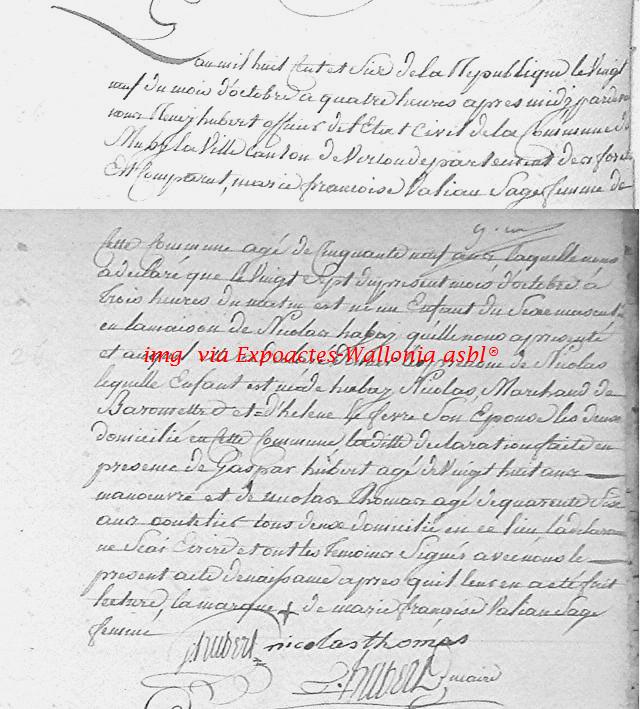 L'an mil huit Cent et Six de la Republique le vingt
neuf du mois d'octobre a quatre heures apres midy par de
nous hubert officier de l'Etat Civil de la Commune de
Muby la Ville Canton de Virton departement des fore
Est Comparut, marie francoise Valiau Sage femme de
Cette Commune agé de Cinquante neuf ans laquelle nous
a declaré que le Vingt Sept du present mois d'octobre à
Trois heures du matin est né un Enfant du Sexe masculin
en la maison de Nicolas habaz, quelle nous a presenté
et auquel le prenom de Nicolas
img via Expoactes-Wallonia asbl®
lequelle Enfant est né de habaz Nicolas, Marchand de
et d'helene le fevre Son Epouse les deux
domicilié en Cette Commune la ditte declaration faite en
presence de Gaspar hubert agé de Vingt huit ans
manoeuvre et de nicolas Thomas agé de quarente Six
ans tous deux domicilié en ce lieu la declaran
ne Scai Ecrire et ont les temoins Signés avec nous le
present acte de naissance apres quil leur en a eté fait
lecture, la marque + de marie françoise Valiau Sage
femme
ghubert nicolas thomas
hubert maire